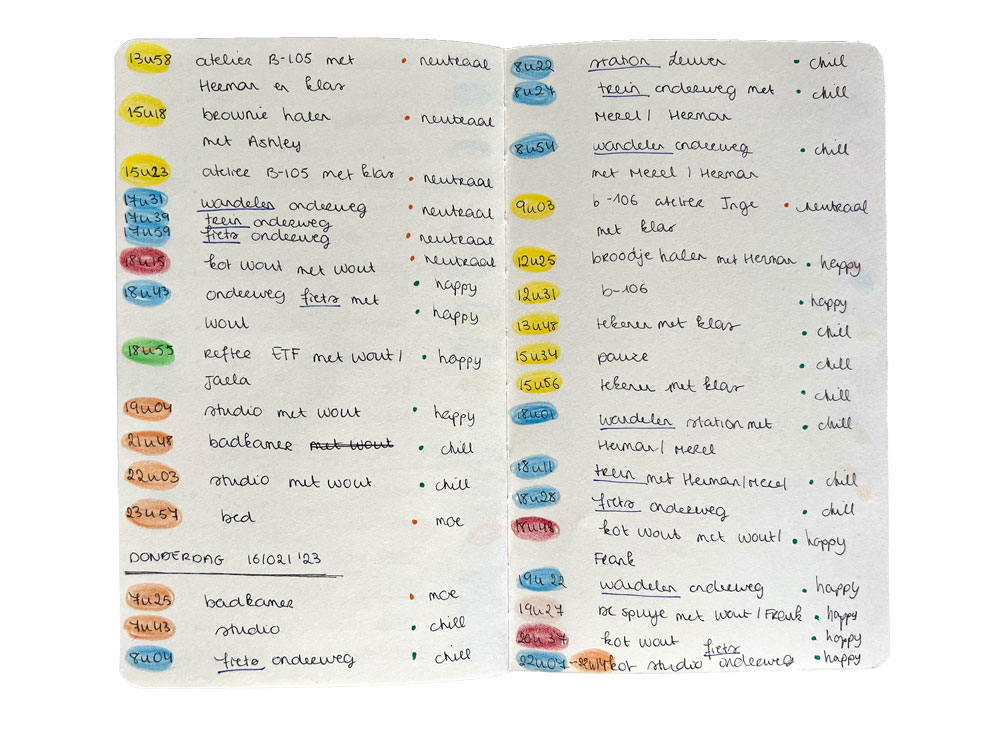 13u58 atelier B-105 met • neutraal
Herman en klas
15u18 brownie halen • neutraal
met Ashley
15u23 atelier B-105 met klas • neutraal
17u31 wandelen onderweg • neutraal
17u39 trein onderweg
17u59 fiets onderweg • neutraal
18u15 kot wout met wout • neutraal
18u43 onderweg fiets met • happy
wout • happy
18u55 reftee ETF met wout/ • happy
Jaela
19u04 studio met wout • happy
21u48 badkamer met wout • chill
22u03 studio met wout • chill
23u57 bed • moe
DONDERDAG 16/02/'23
7u25 badkamer • moe
7u43 studio • chill
8u04 fiets onderweg • chill
8u22 station Leuven • chill
8u27 trein onderweg met • chill
Merel / Herman
8u54 wandelen onderweg • chill
met Merel / Herman
9u03 b-106 atelier Inge • neutraal
met klas
12u25 broodje halen met Herman • happy
12u31 b-106 • happy
13u48 tekenen met klas • chill
15u34 pauze • chill
15u56 tekenen met klas • chill
18u01 wandelen station met • chill
Herman / Merel
18u11 trein met Herman/Merel • chill
18u28 fiets onderweg • chill
18u48 kot wout met wout/ • happy
Frank
19u22 wandelen onderweg • happy
19u27 De spuye met wout / Frank • happy
20u37 kot wout • happy
fiets
22u07 - 22u14 kot studio onderweg • happy